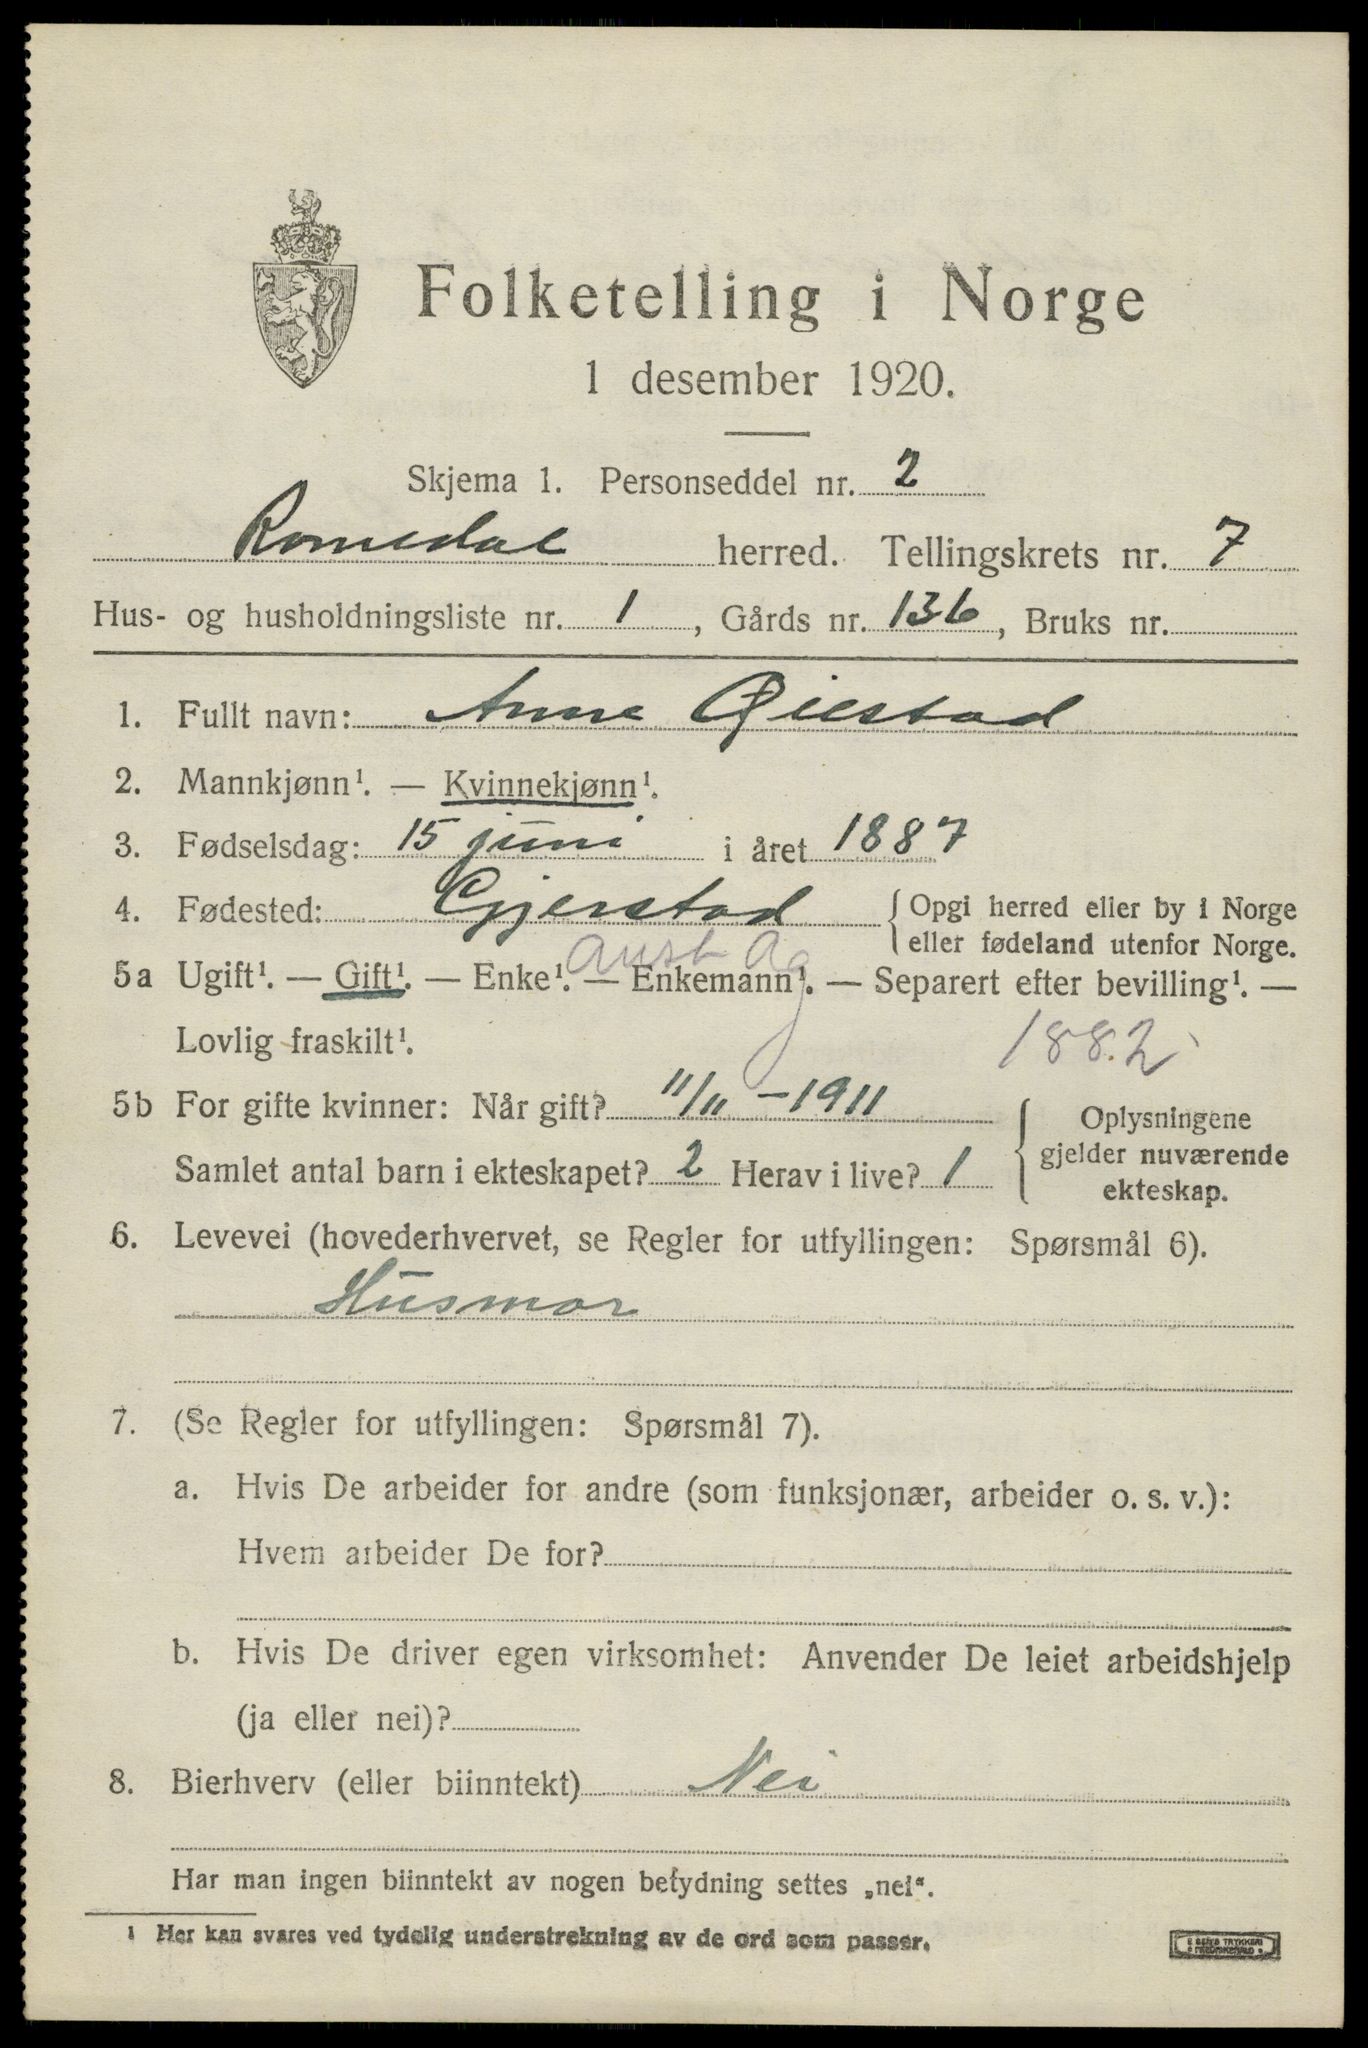 Folketelling i Norge
1 desember 1920.
Skjema 1. Personseddel nr. 2
Romedal herred. Tellingskrets nr. 7
Hus- og husholdningsliste nr. 1, Gårds nr. 136, Bruks nr.
1. Fullt navn: Anne Øiestad
2. Mannkjønn¹. — Kvinnekjønn¹.
3. Fødselsdag: 15 juni i året 1887
4. Fødested: Gjerstad { Opgi herred eller by i Norge
eller fødeland utenfor Norge.
Aust Ag
5a Ugift¹. — Gift¹. — Enke¹. — Enkemann¹. — Separert efter bevilling¹. —
Lovlig fraskilt¹. 1882
5b For gifte kvinner: Når gift? 11/11 - 1911
Samlet antal barn i ekteskapet? 2 Herav i live? 1
{ Oplysningene
gjelder nuværende
ekteskap.
6. Levevei (hovederhvervet, se Regler for utfyllingen: Spørsmål 6).
Husmor
7. (Se Regler for utfyllingen: Spørsmål 7).
a. Hvis De arbeider for andre (som funksjonær, arbeider o. s. v.):
Hvem arbeider De for?
b. Hvis De driver egen virksomhet: Anvender De leiet arbeidshjelp
(ja eller nei)?
8. Bierhverv (eller biinntekt) Nei
Har man ingen biinntekt av nogen betydning settes „nei“.
¹ Her kan svares ved tydelig understrekning av de ord som passer.